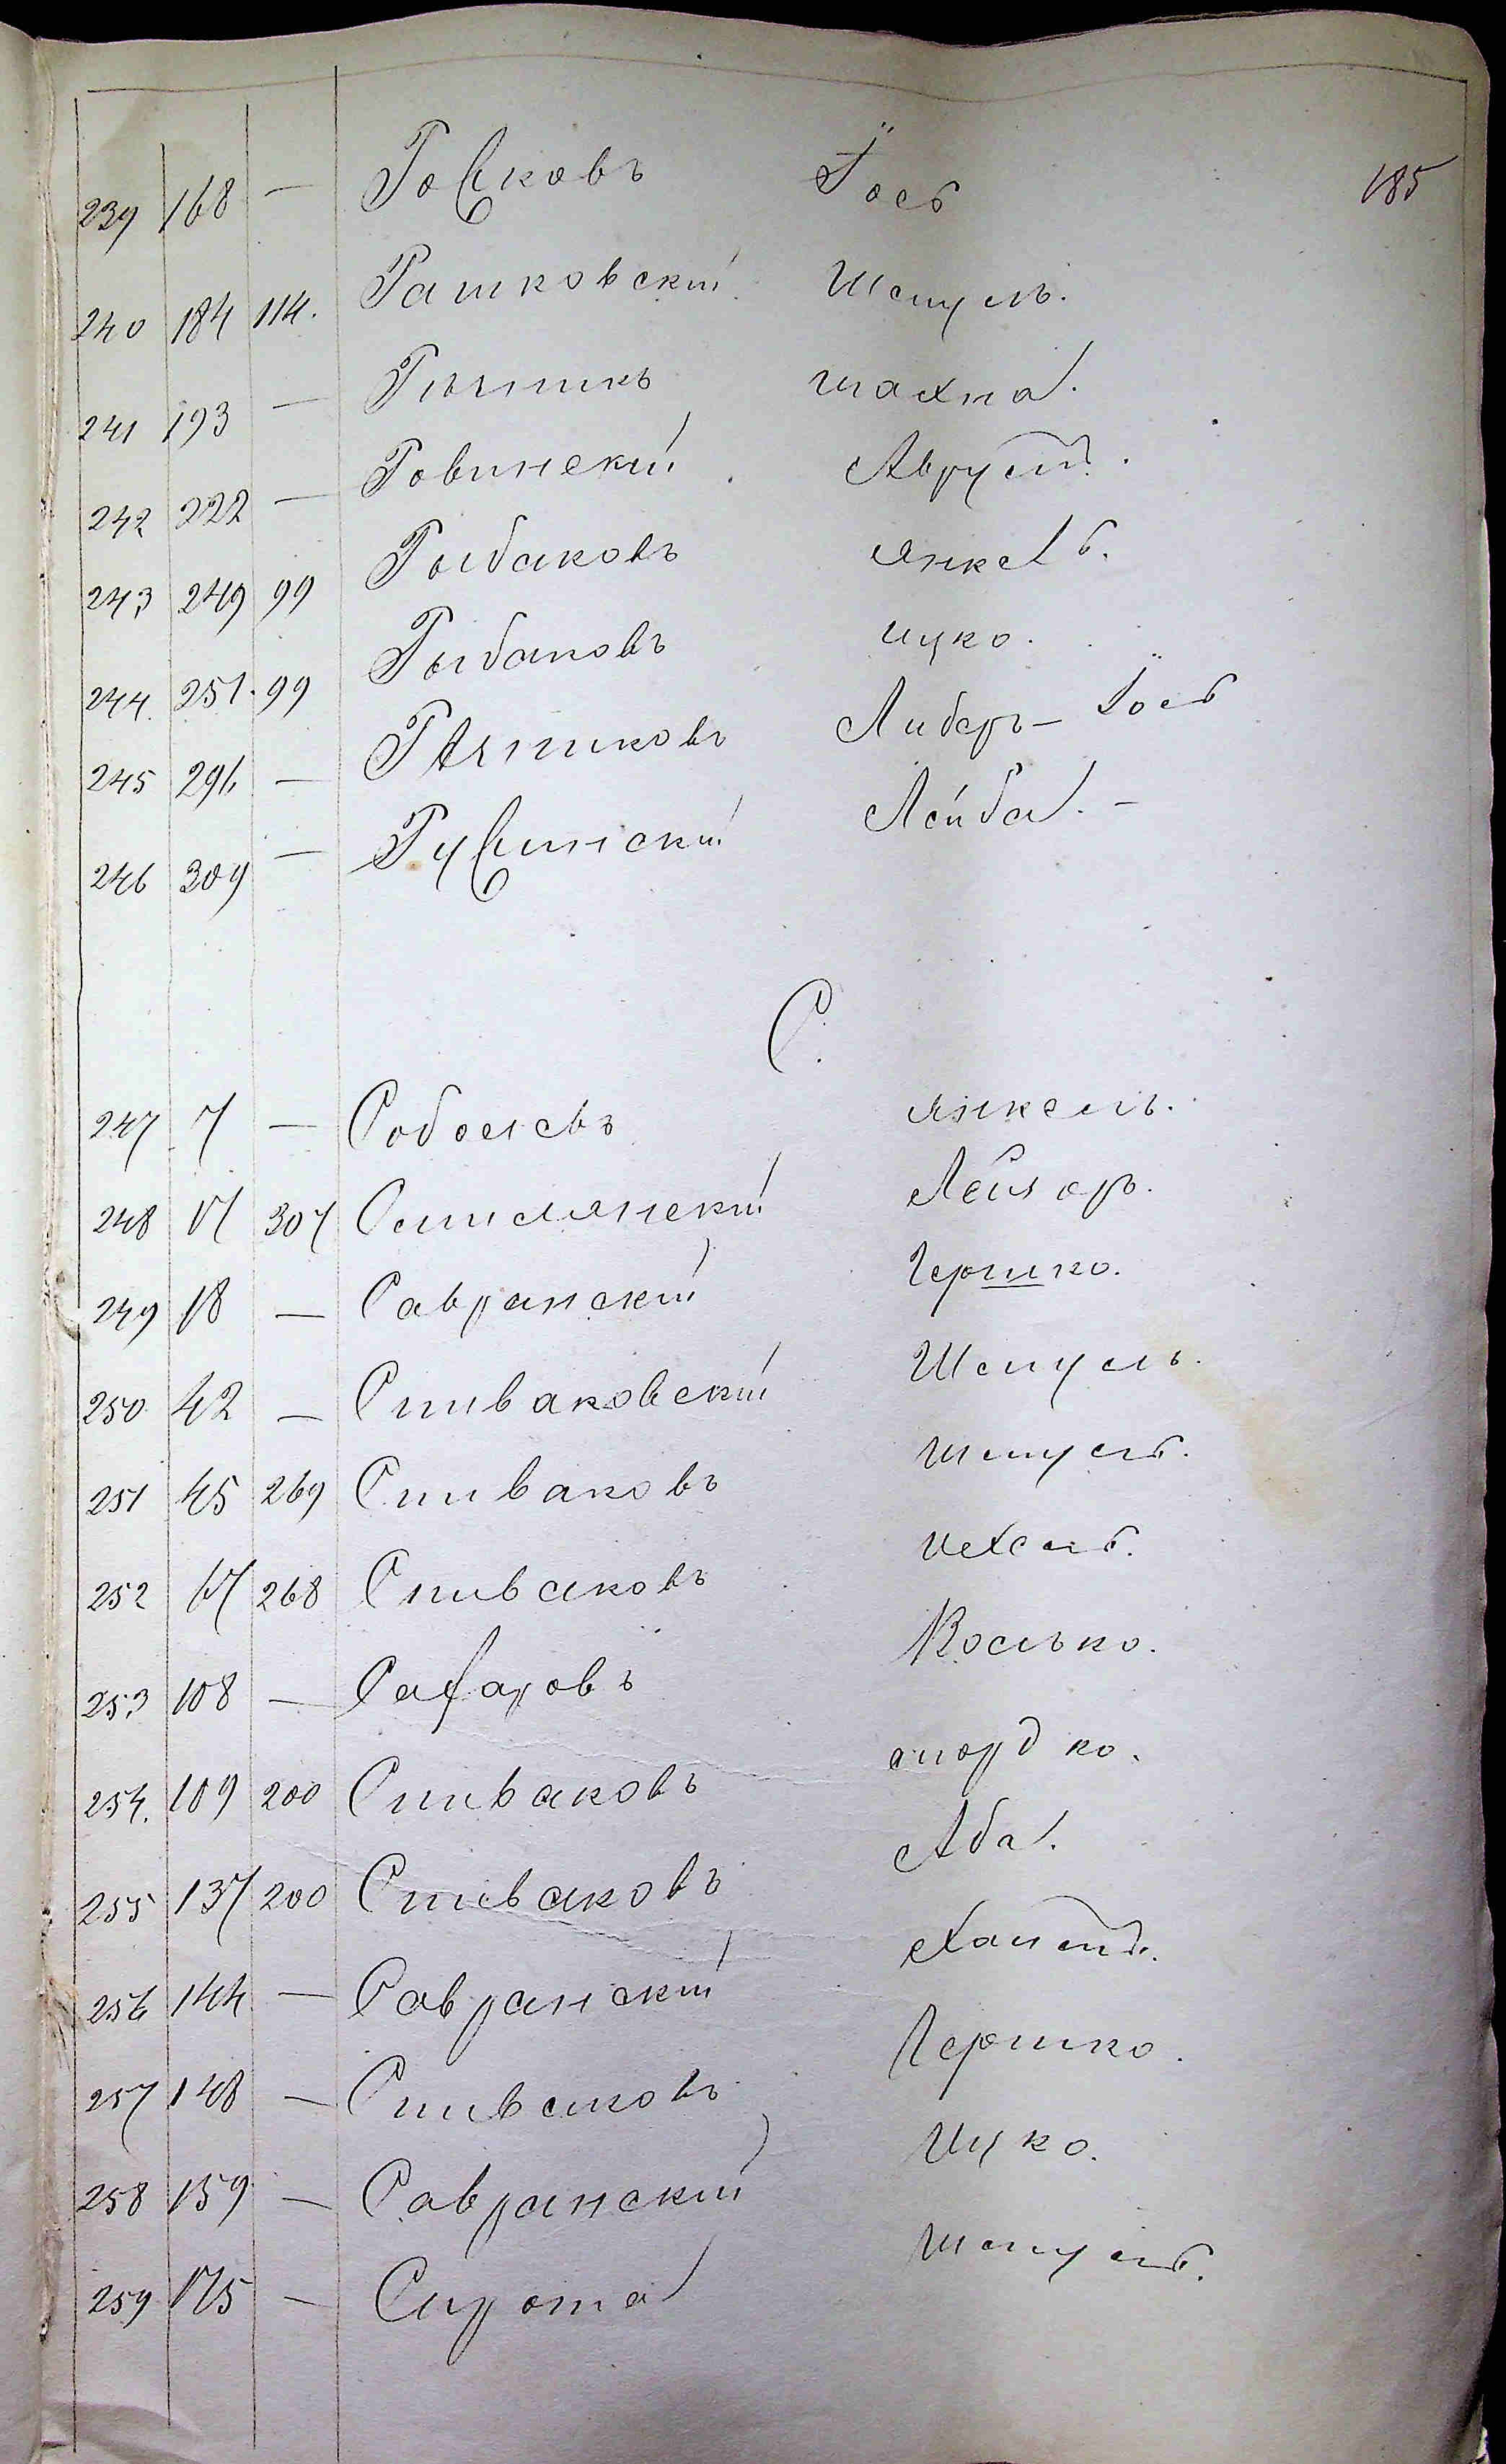 185
239 168 — Ровковъ Іось
240 184 114. Рашковскій Шмуль.
241 193 — Рѣзникъ Шахна.
242 222 — Ровинскій Аврумъ.
243 249 99 Рыбаковъ Янкель.
244. 251. 99 Рыбаковъ Ицко.
245 296 — Рѣзниковъ Либеръ — Іось
246 309 — Рувинскій Лейба. —
С.
247 7 — Соболевъ Янкель.
248 17 307 Смилянскій Лейзоръ.
249 18 — Савранскій Гершко.
250 42 — Спиваковскій Шмуль.
251 45 269 Спиваковъ Шмуль.
252 67 268 Спиваковъ Ихель.
253 108 — Сафаровъ Іосько.
254. 109 200 Спиваковъ Мордко.
255 137 200 Спиваковъ Аба.
256 144 — Савранскій Хаимъ.
257 148 — Спиваковъ Гершко.
258 159 — Савранскій Ицко.
259 175 — Сирота Шмуль.